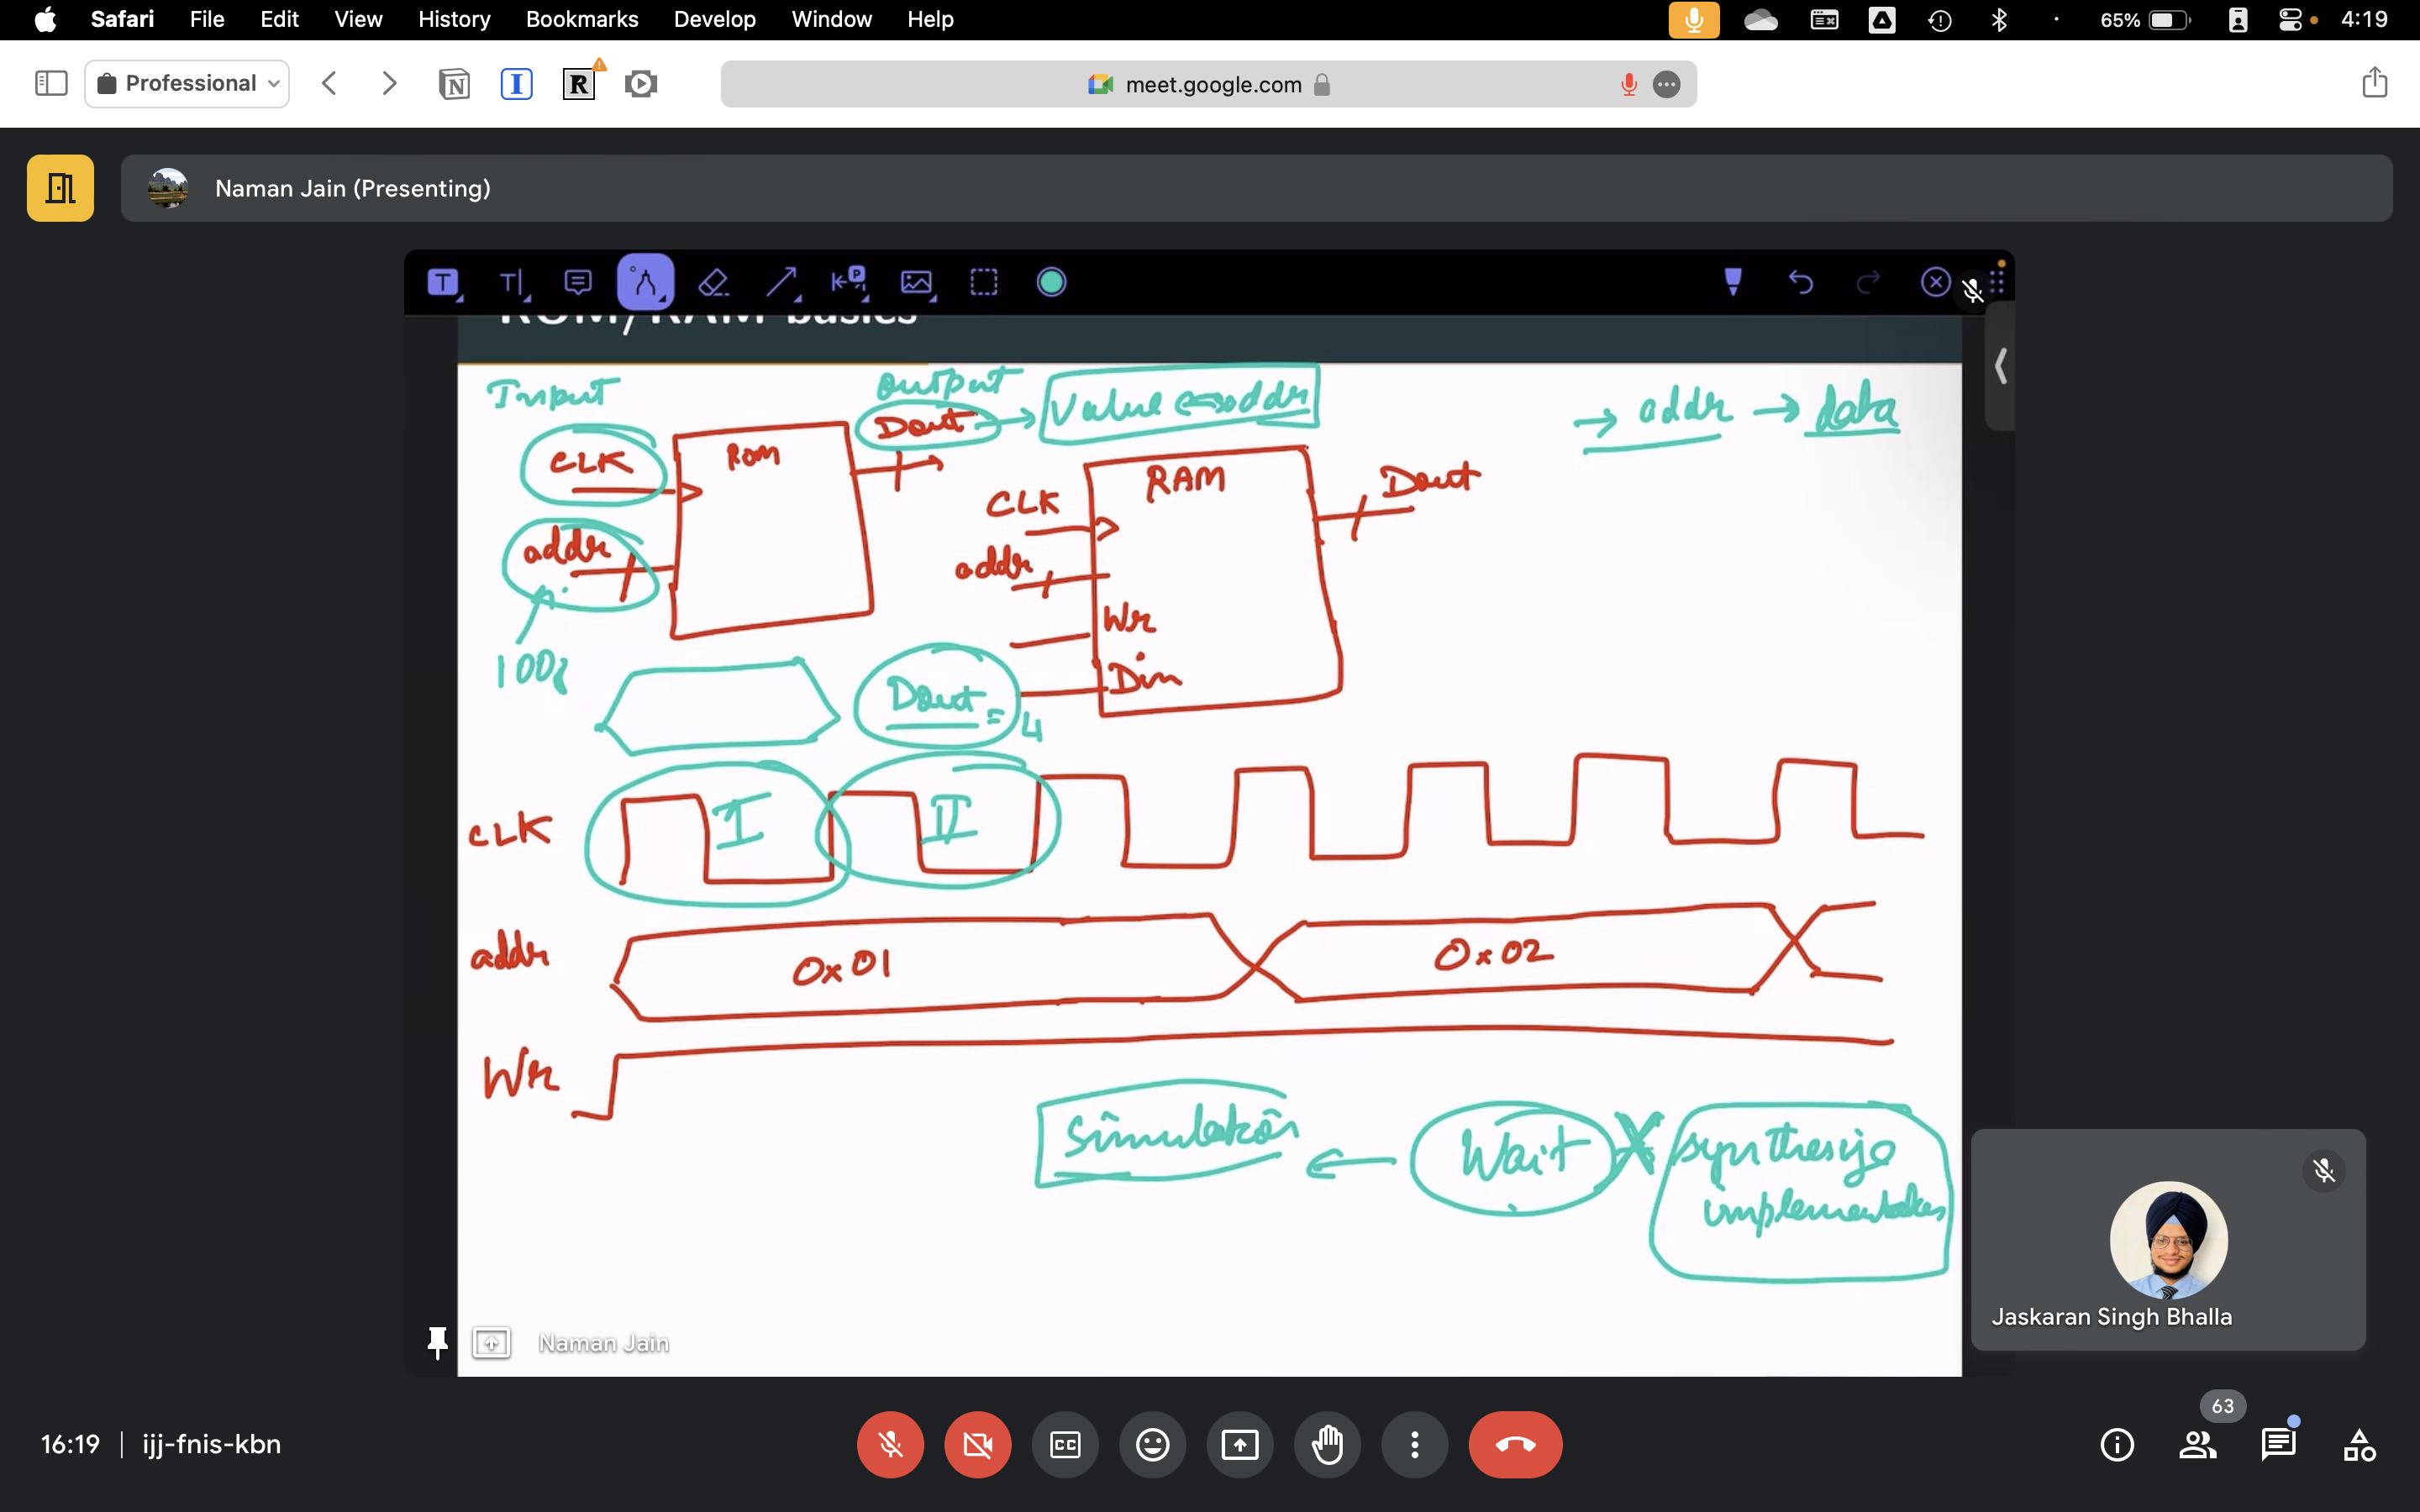 Safari File Edit View History Bookmarks Develop Window Help 65% 4:19
Professional meet.google.com
Naman Jain (Presenting)
ROM/RAM basics
Input output Dout → Value ↔ addr → addr → data
CLK Rom
addr
CLK RAM Dout
addr
Wr
Din
100
Dout = 4
CLK I II
addr 0x01 0x02
Wr
Simulation ← Wait X synthesis
implementation
Naman Jain
Jaskaran Singh Bhalla
16:19 | ijj-fnis-kbn
CC
63